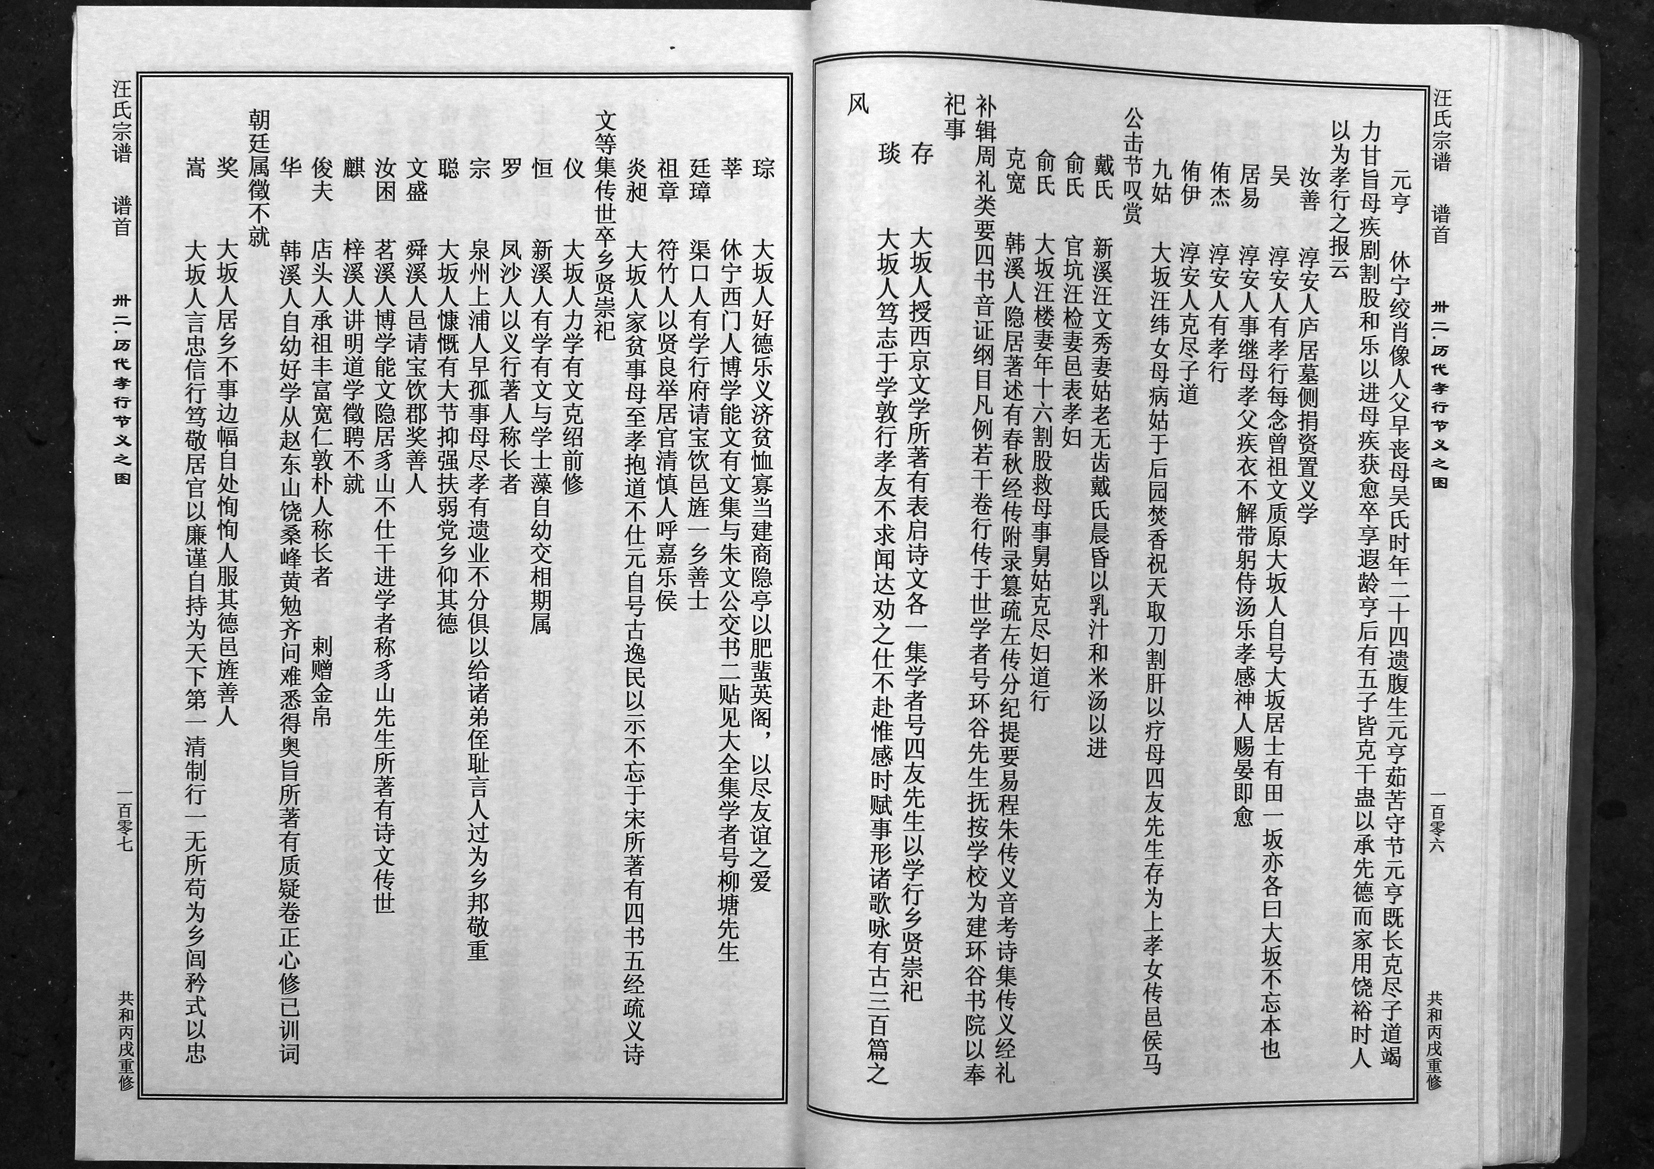 汪氏宗谱 谱首 卅二·历代孝行节义之图 一百零六 共和丙戌重修
元亨 休宁绞肖像人父早丧母吴氏时年二十四遗腹生元亨茹苦守节元亨既长克尽子道竭
力甘旨母疾剧割股和乐以进母疾获愈卒享遐龄亨后有五子皆克干蛊以承先德而家用饶裕时人
以为孝行之报云
汝善 淳安人庐居墓侧捐资置义学
吴 淳安人有孝行每念曾祖文质原大坂人自号大坂居士有田一坂亦各曰大坂不忘本也
居易 淳安人事继母孝父疾衣不解带躬侍汤乐孝感神人赐晏即愈
侑杰 淳安人有孝行
侑伊 淳安人克尽子道
九姑 大坂汪纬女母病姑于后园焚香祝天取刀割肝以疗母四友先生存为上孝女传邑侯马
公击节叹赏
戴氏 新溪汪文秀妻姑老无齿戴氏晨昏以乳汁和米汤以进
俞氏 官坑汪检妻邑表孝妇
俞氏 大坂汪楼妻年十六割股救母事舅姑克尽妇道行
克宽 韩溪人隐居著述有春秋经传附录篡疏左传分纪提要易程朱传义音考诗集传义经礼
补辑周礼类要四书音证纲目凡例若干卷行传于世学者号环谷先生抚按学校为建环谷书院以奉
祀事
存 大坂人授西京文学所著有表启诗文各一集学者号四友先生以学行乡贤崇祀
琰 大坂人笃志于学敦行孝友不求闻达劝之仕不赴惟感时赋事形诸歌咏有古三百篇之
风
琮 大坂人好德乐义济贫恤寡当建商隐亭以肥蜚英阁，以尽友谊之爱
莘 休宁西门人博学能文有文集与朱文公交书二贴见大全集学者号柳塘先生
廷璋 渠口人有学行府请宝饮邑旌一乡善士
祖章 符竹人以贤良举居官清慎人呼嘉乐侯
炎昶 大坂人家贫事母至孝抱道不仕元自号古逸民以示不忘于宋所著有四书五经疏义诗
文等集传世卒乡贤崇祀
仪 大坂人力学有文克绍前修
恒 新溪人有学有文与学士藻自幼交相期属
罗 凤沙人以义行著人称长者
宗 泉州上浦人早孤事母尽孝有遗业不分俱以给诸弟侄耻言人过为乡邦敬重
聪 大坂人慷慨有大节抑强扶弱党乡仰其德
文盛 舜溪人邑请宝饮郡奖善人
汝困 茗溪人博学能文隐居豸山不仕干进学者称豸山先生所著有诗文传世
麒 梓溪人讲明道学徵聘不就
俊夫 店头人承祖丰富宽仁敦朴人称长者 剌赠金帛
华 韩溪人自幼好学从赵东山饶桑峰黄勉齐问难悉得奥旨所著有质疑卷正心修已训词
朝廷属徵不就
奖 大坂人居乡不事边幅自处恂恂人服其德邑旌善人
嵩 大坂人言忠信行笃敬居官以廉谨自持为天下第一清制行一无所苟为乡闾矜式以忠
汪氏宗谱 谱首 卅二·历代孝行节义之图 一百零七 共和丙戌重修